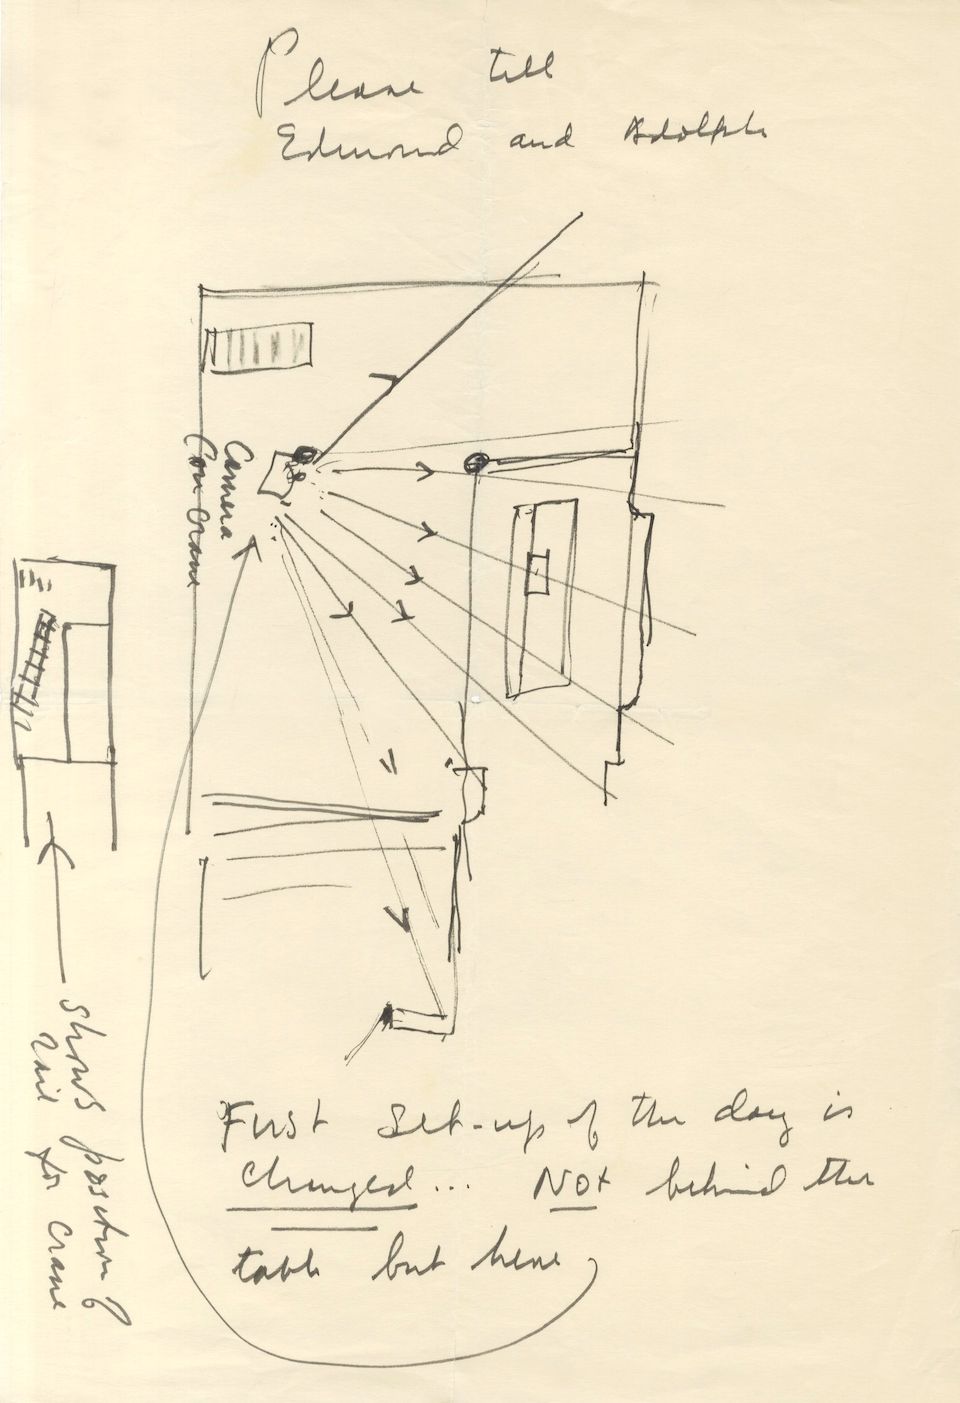 Please tell
Edmond and Adolph
Camera
(on crane
Shows position of
rail for crane
First Set-up of the day is
changed... Not behind the
table but here